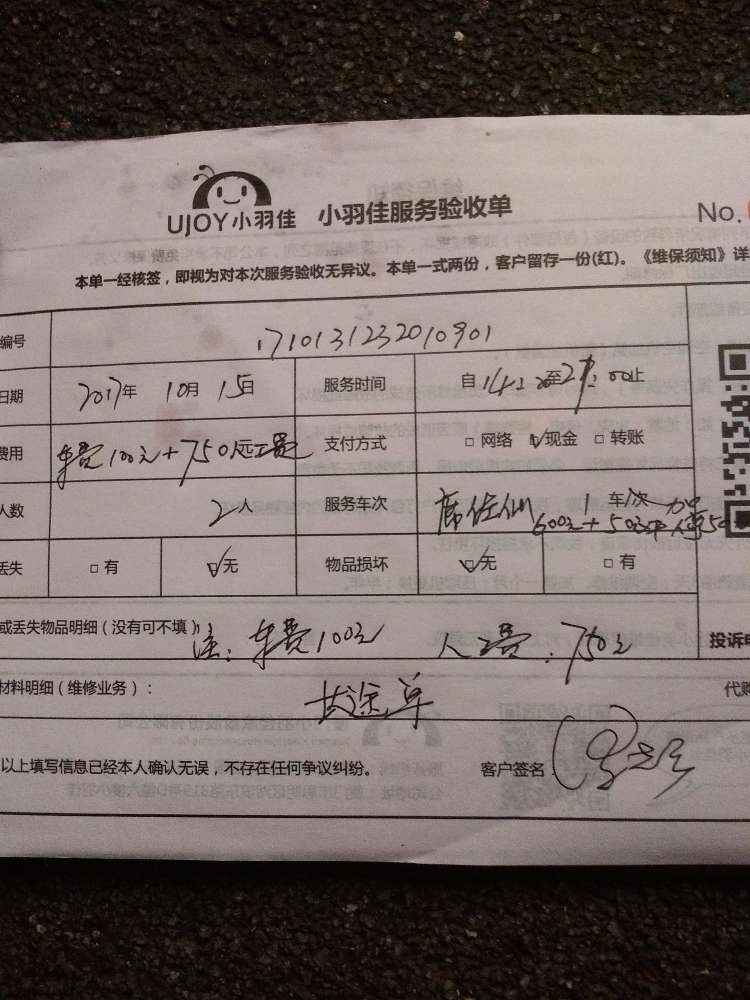 UJOY小羽佳 小羽佳服务验收单
No.
本单一经核签，即视为对本次服务验收无异议。本单一式两份，客户留存一份(红)。《维保须知》详
编号 1710131232010901
日期 2017年 10月 15日 服务时间 自14:20至21:00止
费用 车费100元+750人工费 支付方式 □网络 ☑现金 □转账
人数 2人 服务车次 1 车/次
600元+50
丢失 □有 ☑无 物品损坏 ☑无 □有
或丢失物品明细（没有可不填） 注：车费100元 人工费：750元 投诉电
材料明细（维修业务）： 长途单 代购
以上填写信息已经本人确认无误，不存在任何争议纠纷。 客户签名